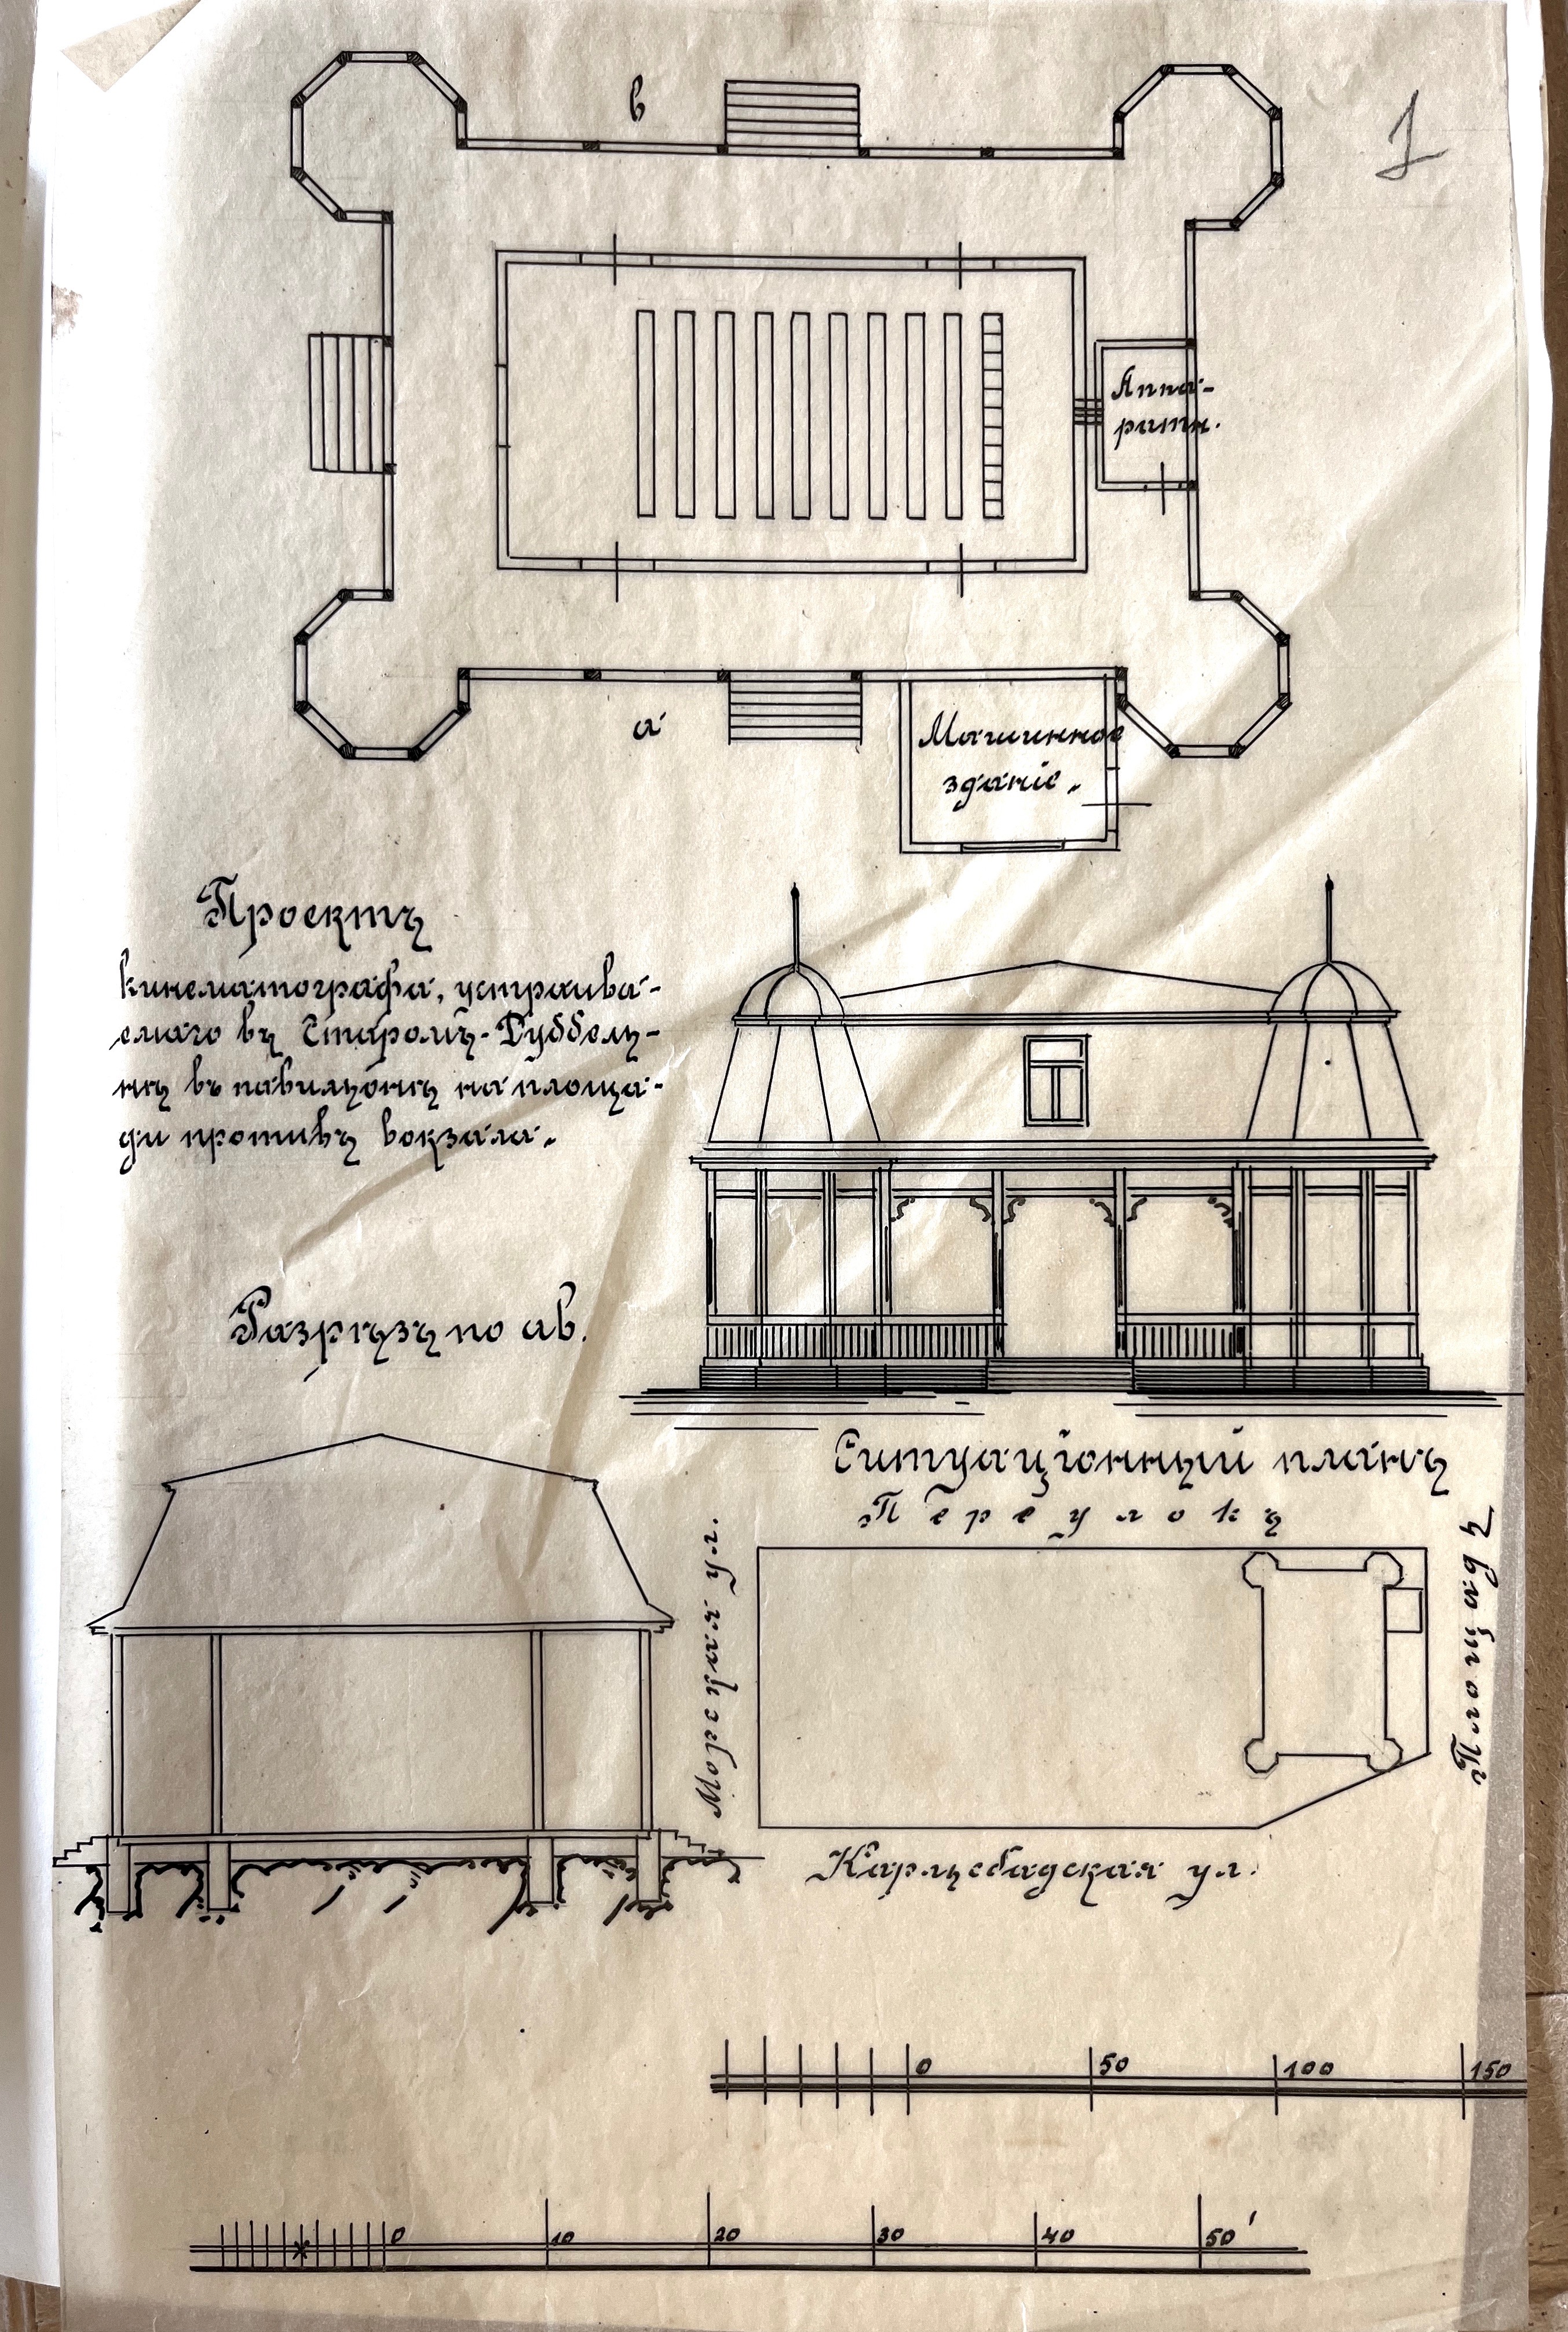 в
1
Аппа-
ратн.
а
Машинное
зданіе.
Проектъ
кинематографа, устраива-
емаго въ Старомъ-Дуббель-
нѣ въ павильонѣ на площа-
ди противъ вокзала.
Разрѣзъ по ав.
Ситуаціонный планъ
Переулокъ
Морская ул.
Карльсбадская ул.
0 50 100 150
0 10 20 30 40 50'